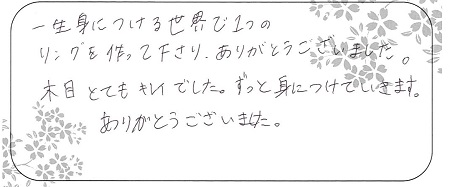 一生身につける世界で1つの
リングを作って下さり、ありがとうございました。
木目とてもキレイでした。ずっと身につけていきます。
ありがとうございました。